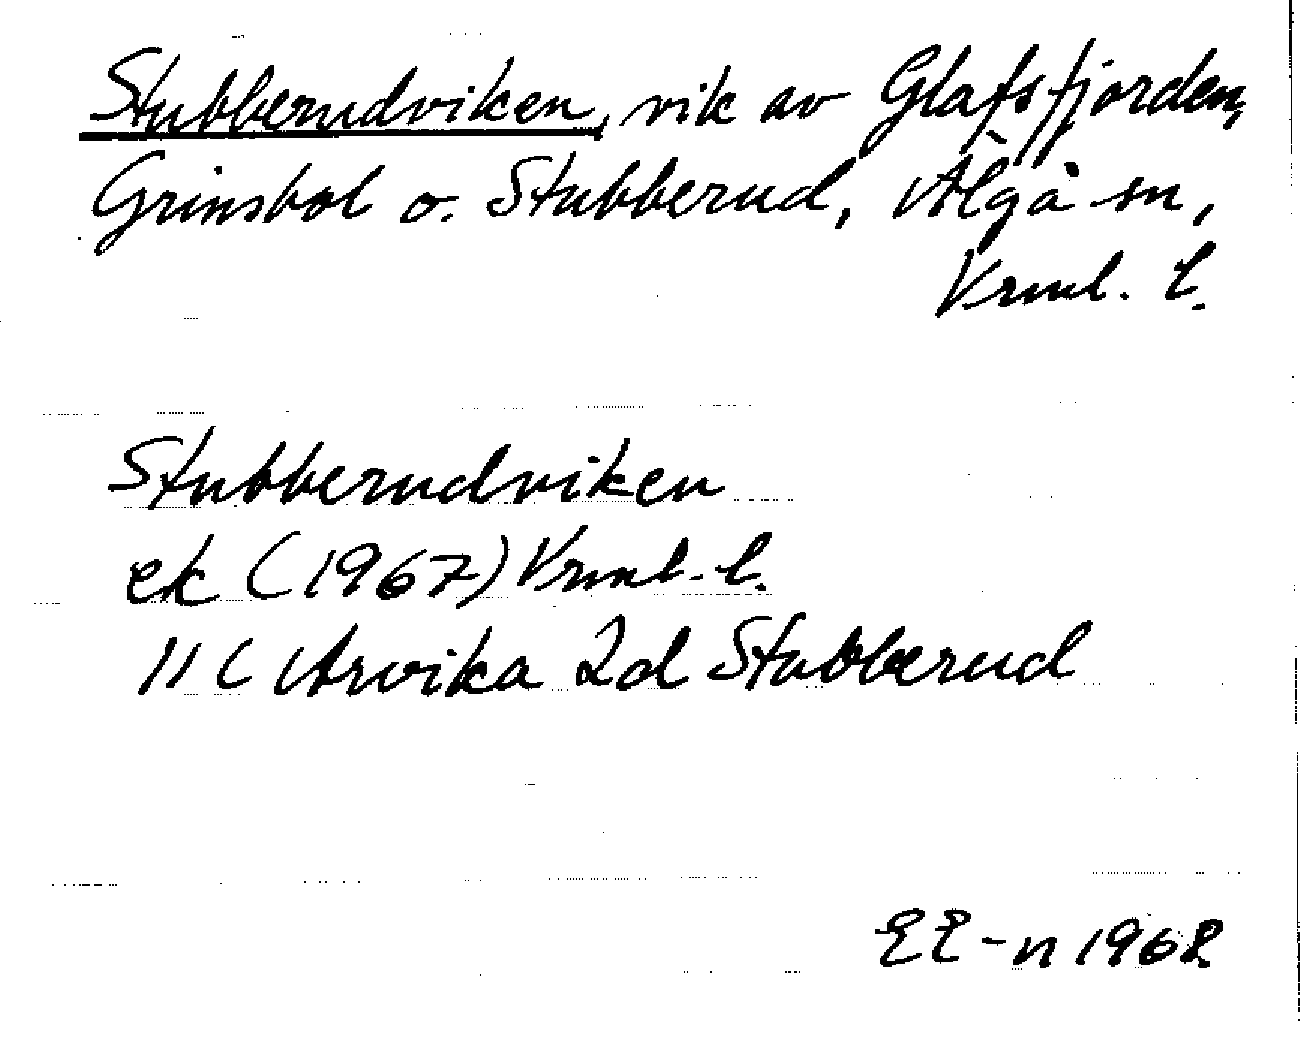 Stubberudviken, vik av Glafsfjorden,
Grinsbol o. Stubberud, Älgå sn,
Vrml. l.
Stubberudviken
ek (1967) Vrml. l.
11 C Arvika 2d Stubberud
EE-n 1968